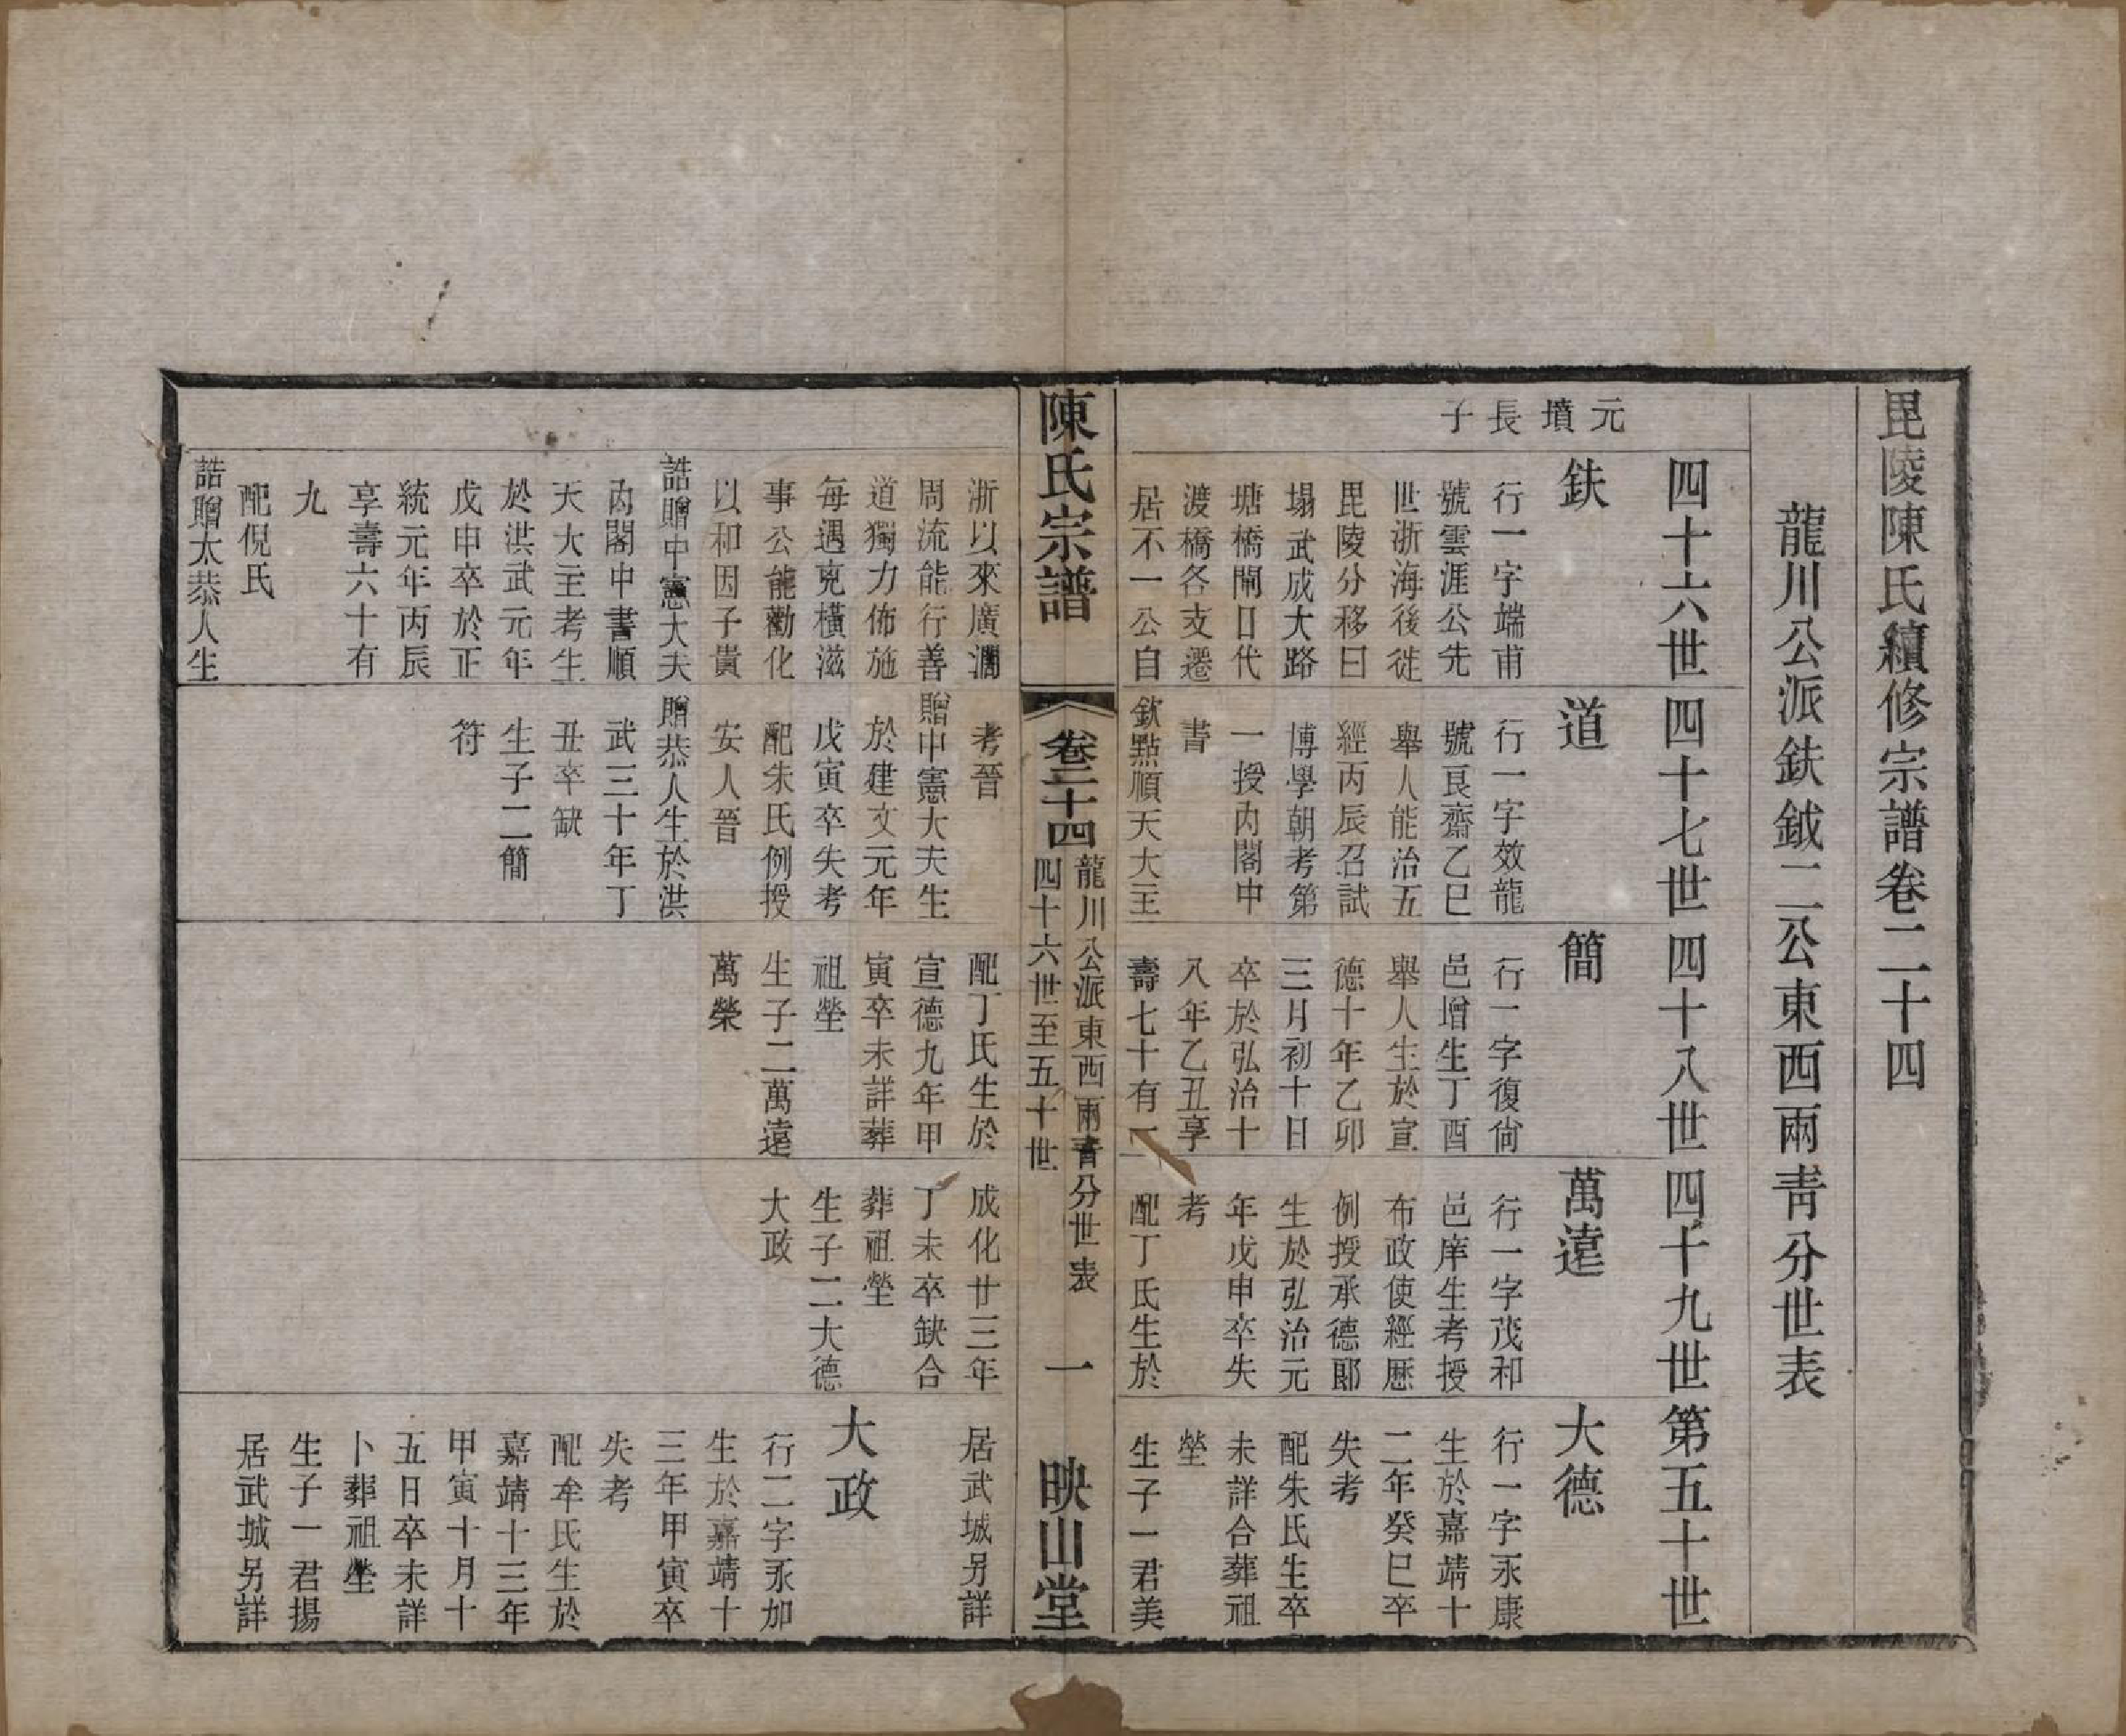 毘陵陳氏續修宗譜卷二十四
龍川公派鈇鉞二公東西兩青分世表
元墳長子
四十六世
鈇
行一字端甫
號雲涯公先
世浙海後徙
毘陵分移曰
塌武成大路
塘橋閘日代
渡橋各支遷
居不一公自
浙以來廣濶
周流能行善
道獨力佈施
每遇寃橫滋
事公能勸化
以和因子貴
誥贈中憲大夫
內閣中書順
天大主考生
於洪武元年
戊申卒於正
統元年丙辰
享壽六十有
九
配倪氏
誥贈太恭人生
四十七世
道
行一字效龍
號艮齋乙巳
舉人能治五
經丙辰召試
博學朝考第
一授內閣中
書
欽點順天大主
考晉
贈中憲大夫生
於建文元年
戊寅卒失考
配朱氏例授
安人晉
贈恭人生於洪
武三十年丁
丑卒缺
生子二簡
符
四十八世
簡
行一字復尙
邑增生丁酉
舉人生於宣
德十年乙卯
三月初十日
卒於弘治十
八年乙丑享
壽七十有一
配丁氏生於
宣德九年甲
寅卒未詳葬
祖塋
生子二萬遠
萬榮
四十九世
萬遠
行一字茂和
邑庠生考授
布政使經歷
例授承德郎
生於弘治元
年戊申卒失
考
配丁氏生於
成化廿三年
丁未卒缺合
葬祖塋
生子二大德
大政
第五十世
大德
行一字永康
生於嘉靖十
二年癸巳卒
失考
配朱氏生卒
未詳合葬祖
塋
生子一君美
居武城另詳
大政
行二字永加
生於嘉靖十
三年甲寅卒
失考
配牟氏生於
嘉靖十三年
甲寅十月十
五日卒未詳
卜葬祖塋
生子一君揚
居武城另詳
陳氏宗譜
卷二十四
龍川公派東西兩青分世表
四十六世至五十世
一
映山堂